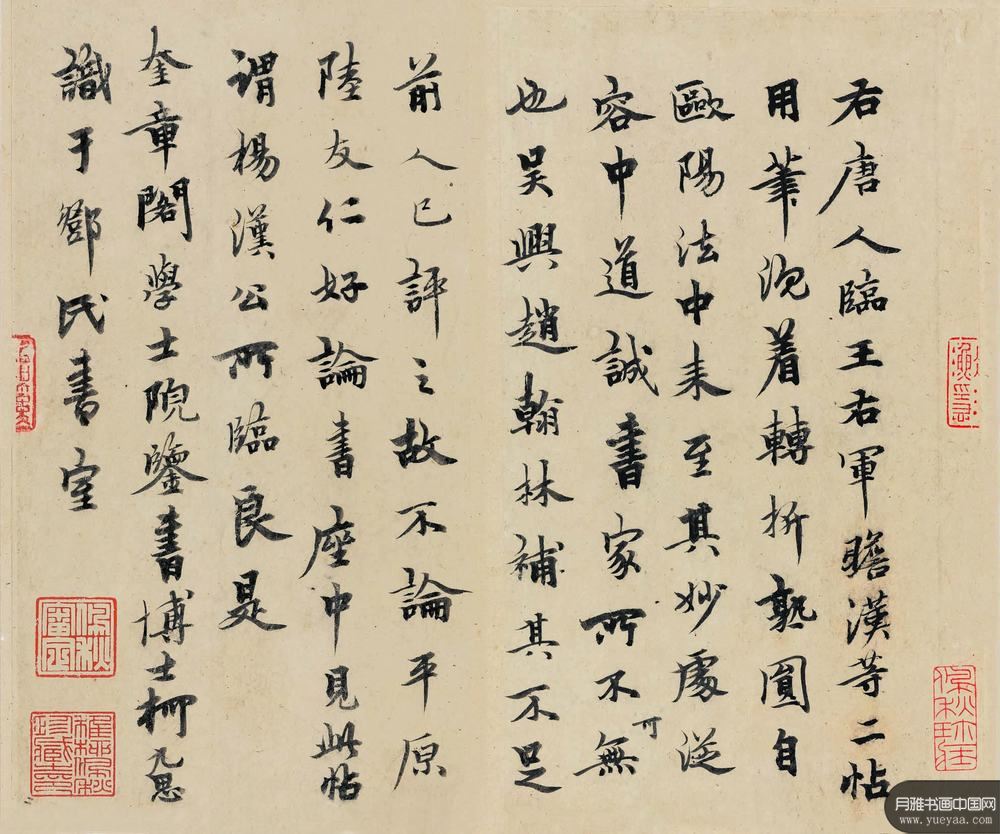 右唐人臨王右軍瞻漢等二帖
用筆沉着轉折熟圓自
歐陽法中来至其妙處從
容中道誠書家所不可無
也吴興趙翰林補其不足
前人已評之故不論平原
陸友仁好論書座中見此帖
謂楊漢公所臨良是
奎章閣學士院鑒書博士柯九思
識于鄧氏書室
月雅书画中国网
www.yueyaa.com